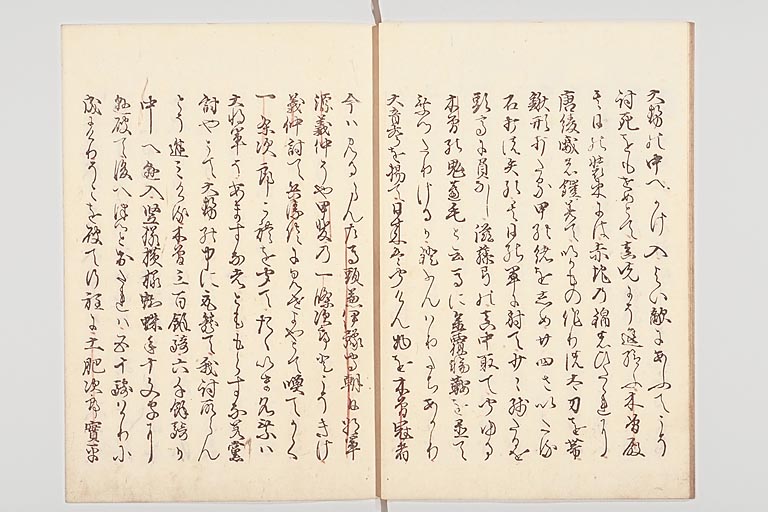 大勢の中へかけ入よい敵にあふてこそ
討死をもせめとて真先にこそ進けれ木曽殿
其日の装束には赤地の錦のひたゝれに
唐綾威の鎧きていかもの作りの太刀を帯
鍬形打たる甲の緒をしめ廿四さいたる
石打の矢の其日の軍に射て少々残たるを
頭高に負なし滋藤の弓の真中取て聞ゆる
木曽の鬼葦毛と云馬に金覆輪の鞍を置て
乗たりけるか鐙ふんはりたちあかり
大音声を揚て日来は聞けん物を木曽冠者
今は見るらん左馬頭兼伊豫守朝日将軍
源義仲そや甲斐の一條次郎とこそきけ
義仲討て兵衛佐に見せよやとて喚てかく
一条次郎これを聞てたゝいま名乗は
大将軍そあますな者とももらすな若党
討やとて大勢の中に取籠て我討取らん
とそ進ミける木曽三百餘騎六千餘騎か
中へ懸入竪様横様蜘蛛手十文字に
懸破て後へつんと出たれは五十騎はかりに
成にけりそこを破て行程に土肥次郎實平